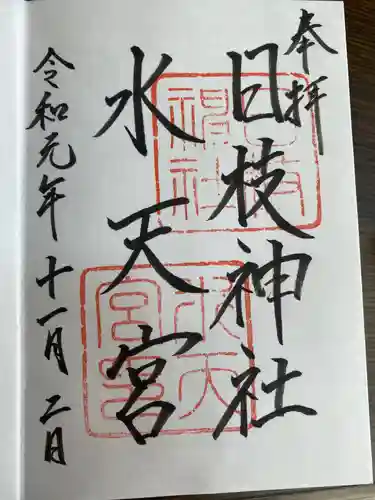 奉拝
日枝神社
水天宮
令和元年十一月二日
日枝神社
水天宮